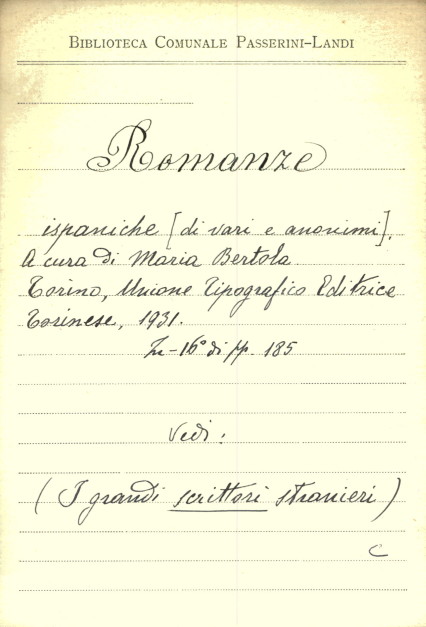 BIBLIOTECA COMUNALE PASSERINI-LANDI
Romanze
ispaniche [di vari e anonimi].
A cura di Maria Bertola
Torino, Unione Tipografico Editrice
Torinese, 1931.
In-16° di pp. 185
Vedi:
(I grandi scrittori stranieri)
C